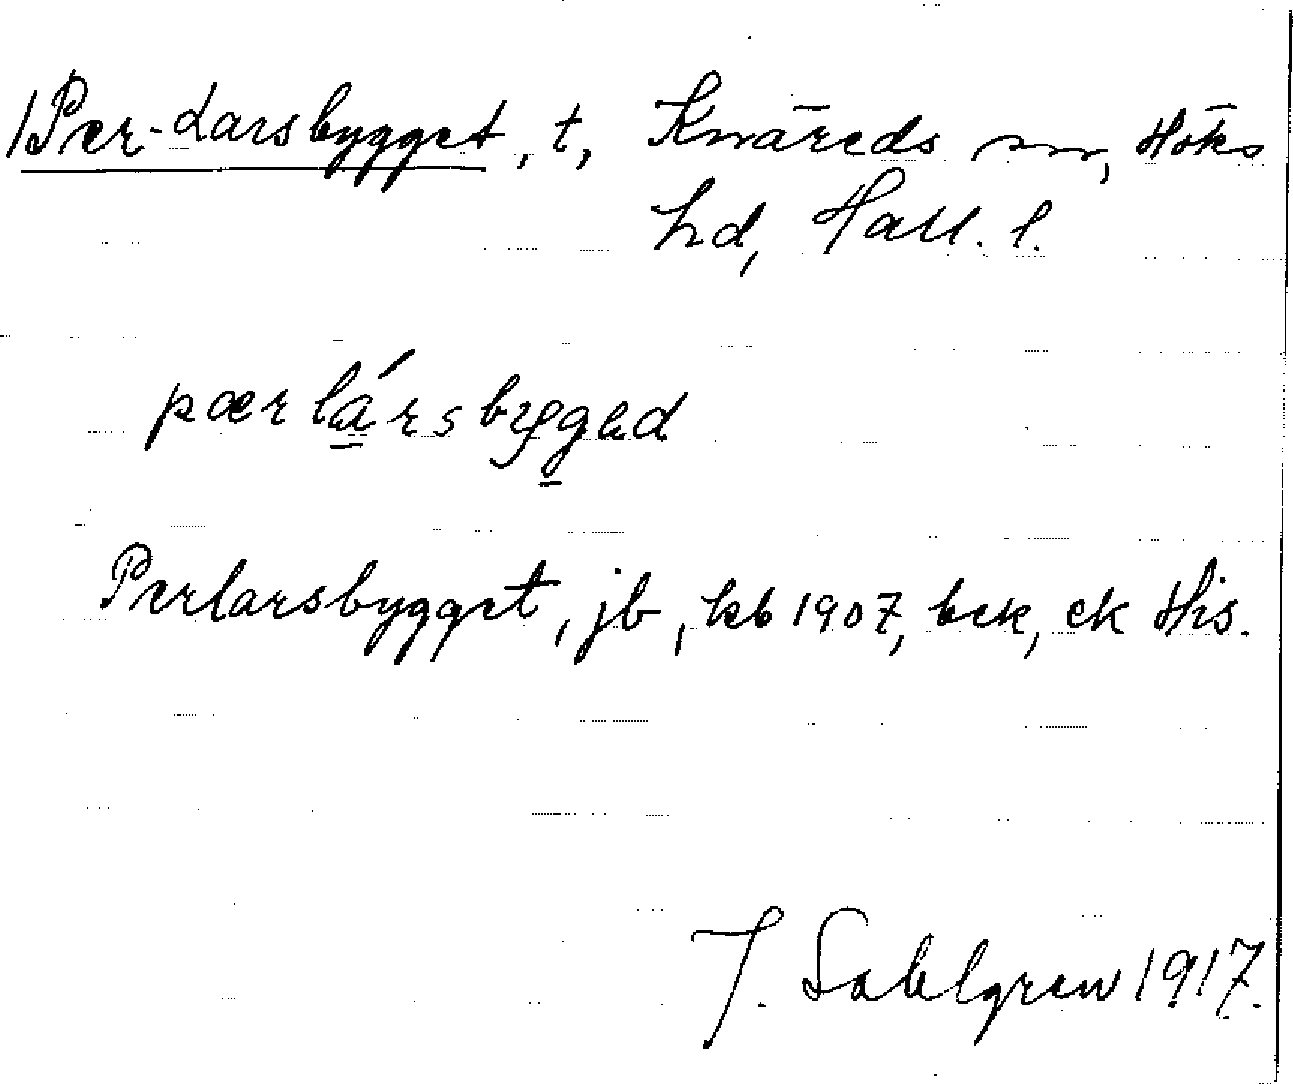 1 Per-Larsbygget, t, Knäreds sn, Höks
hd, Hall. l.
pær lárs bygəd
Perlarsbygget, jb, kb 1907, bek, ek His.
J. Sahlgren 1917.